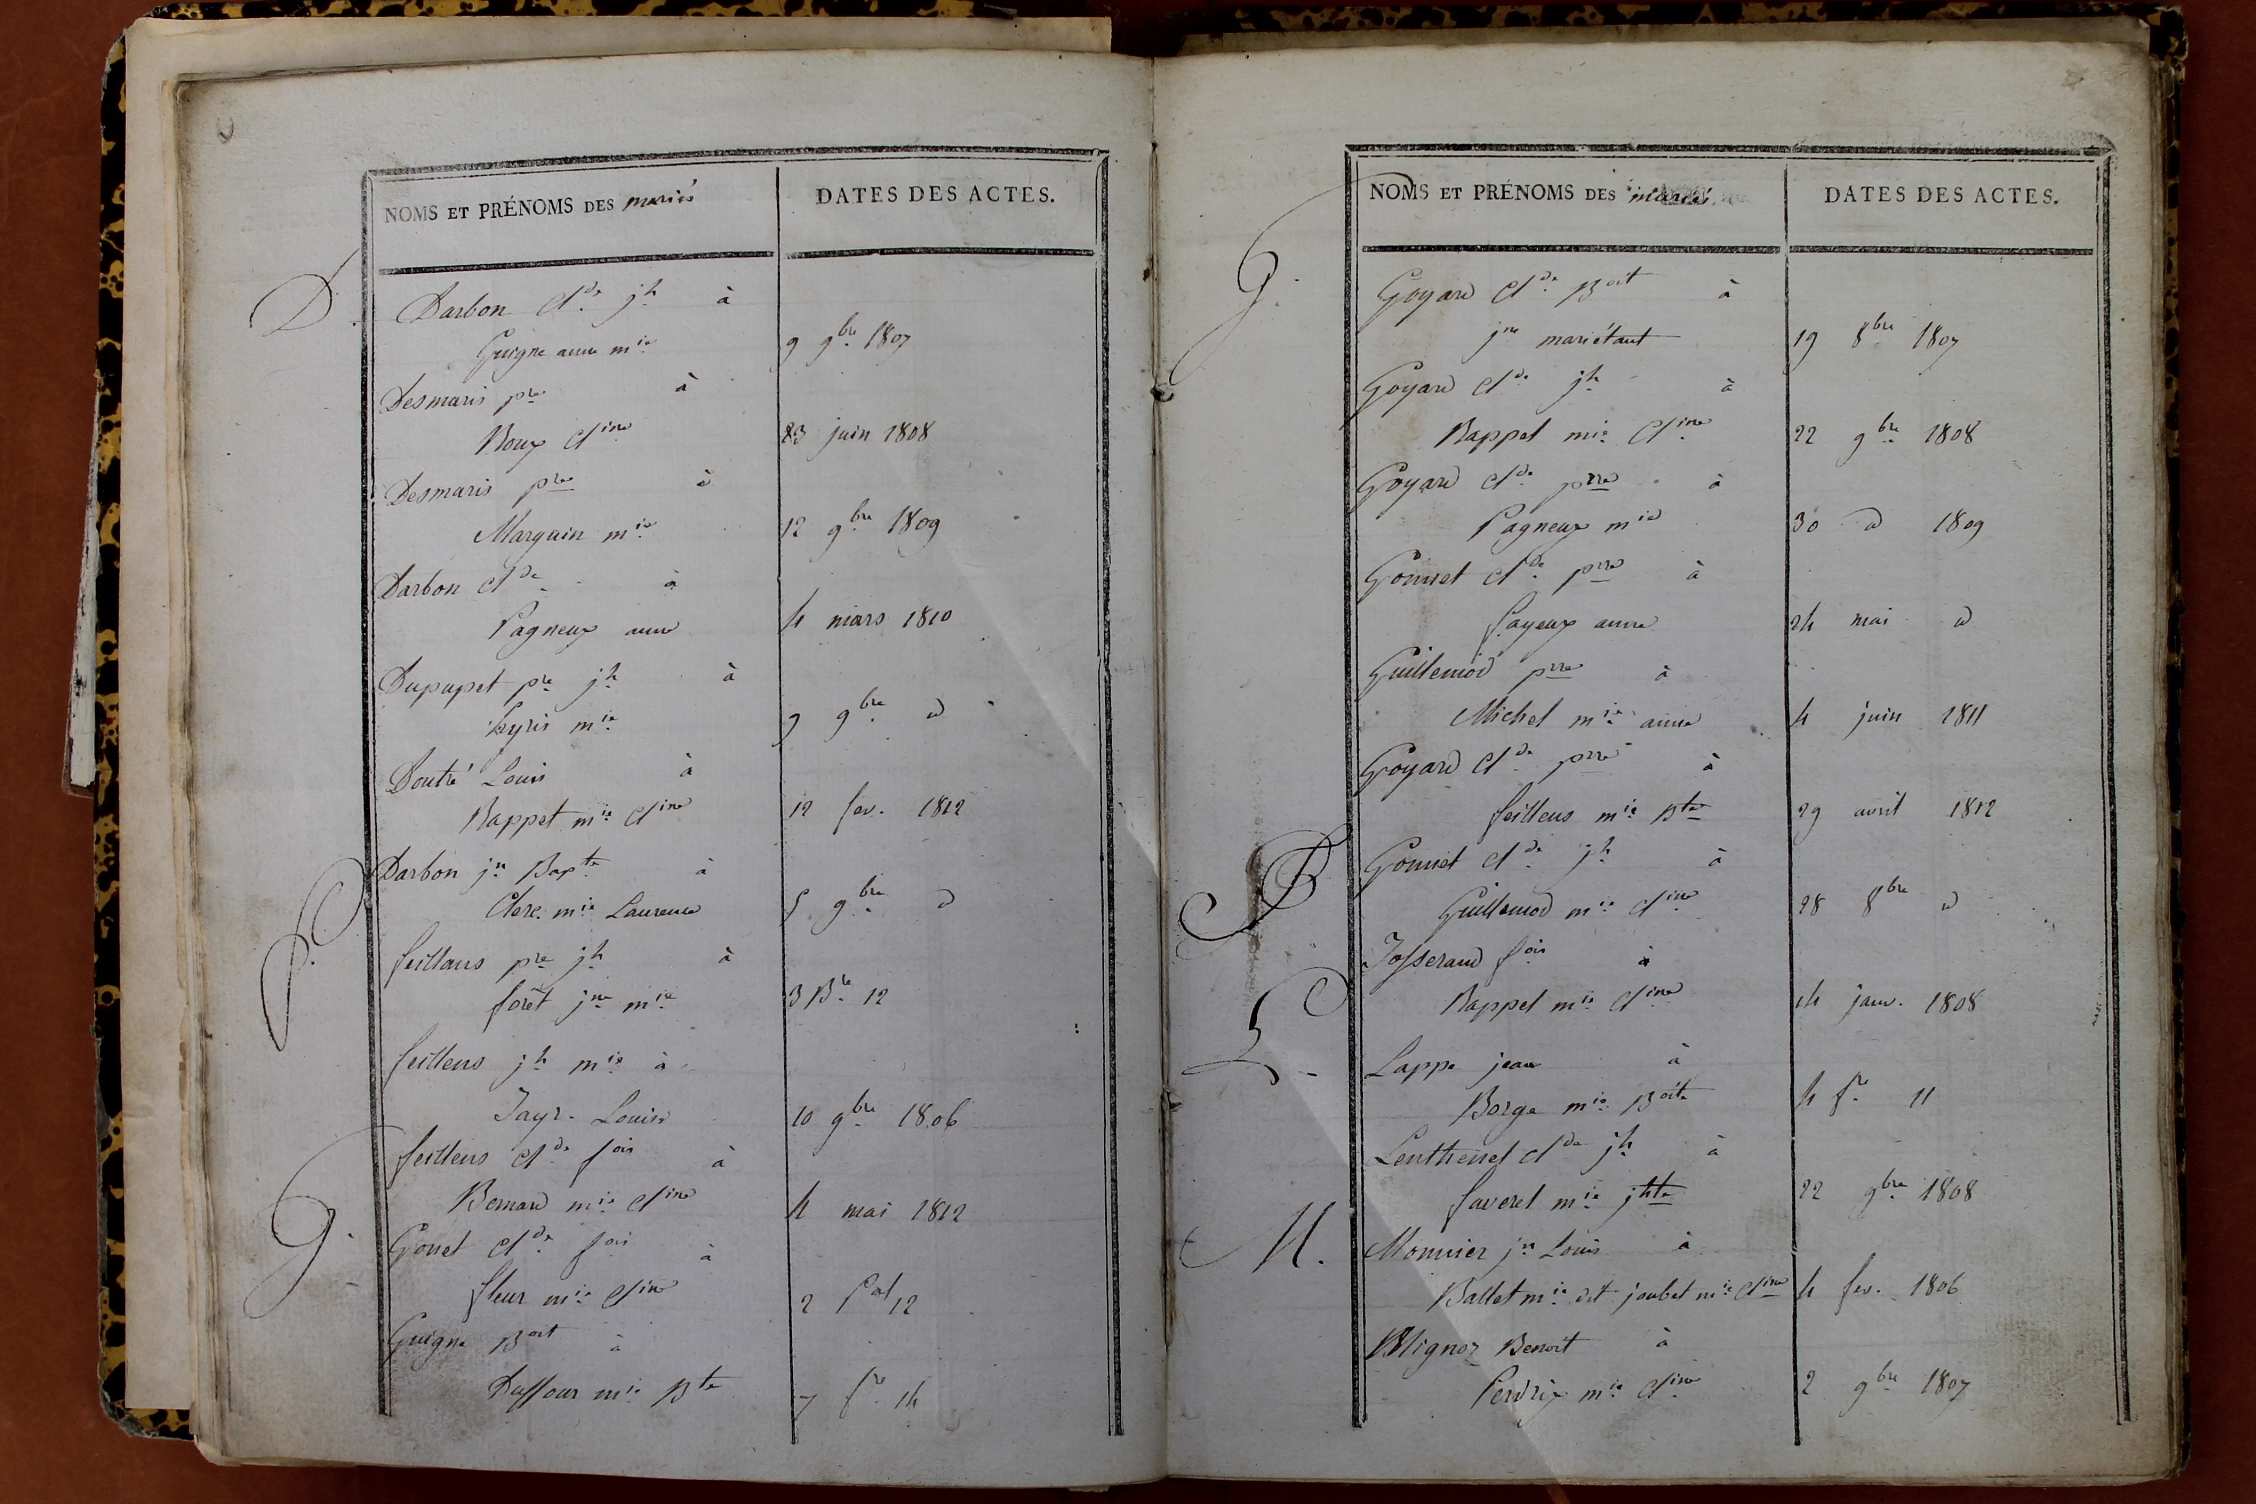 NOMS ET PRÉNOMS DES mariés
DATES DES ACTES.
D.
Darbon Cl.de j.h à
Guigne anne m.ie 9 9.bre 1807
Desmaris p.re à
Roux Cl.ine 23 juin 1808
Desmaris p.re à
Marguin m.ie 12 9.bre 1809
Darbon Cl.de à
Pagneux anne 4 mars 1810
Dupupet p.re j.h à
m.ie 9 9.bre d
Doutré Louis à
Rappet m.ie Cl.ine 12 fev. 1812
Darbon j.n Bap.te à
Clerc m.ie Laurence 5 9.bre d
f.
feillans p.re j.h à
forêt j.ne m.ie 3 B.re 12
feillens j.h m.ie à
Jayr Louise 10 9.bre 1806
feillens Cl.de f.ois à
Bernard m.ie Cl.ine 4 mai 1812
G.
Gonet Cl.de f.ois à
fleur m.ie Cl.ine 2 12
Guigne B.oit à
Duffour m.ie B.te 7 f.re 14
NOMS ET PRÉNOMS DES mariés
DATES DES ACTES.
G.
Goyard Cl.de B.oit à
j.ne mariétant 19 8.bre 1807
Goyard Cl.de j.h à
Rappet m.ie Cl.ine 22 9.bre 1808
Goyard Cl.de p.rre à
Pagneux m.ie 30 d 1809
Gonnet Cl.de p.rre à
fayeux anne 24 mai d
Guillemod p.rre à
Michel m.ie anne 4 juin 1811
Goyard Cl.de p.rre à
feillens m.ie B.te 29 avril 1812
Gonnet Cl.de j.h à
Guillemod m.ie Cl.ine 28 8.bre d
J
Josserand f.ois à
Rappet m.ie Cl.ine 14 janv. 1808
L.
Lappe jean à
Borge m.ie B.oite 4 f.re 11
Lenthenet Cl.de j.h à
faveret m.ie j.hte 22 9.bre 1808
M.
Monnier j.n Louis à
Ballet m.ie dit joubet m.ie Cl.ine 4 fev. 1806
Mignoz Benoit à
Perdrix m.ie Cl.ine 2 9.bre 1807